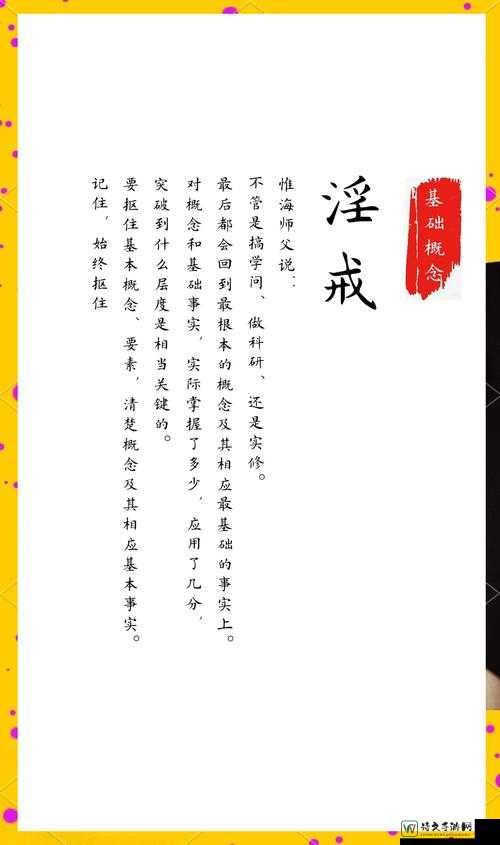 基础概念
淫戒
惟海师父说：
不管是搞学问、做科研、还是实修。
最后都会回到最根本的概念及其相应最基础的事实上。
对概念和基础事实，实际掌握了多少，应用了几分，
突破到什么层度是相当关键的。
要抠住基本概念、要素，清楚概念及其相应基本事实。
记住，始终抠住